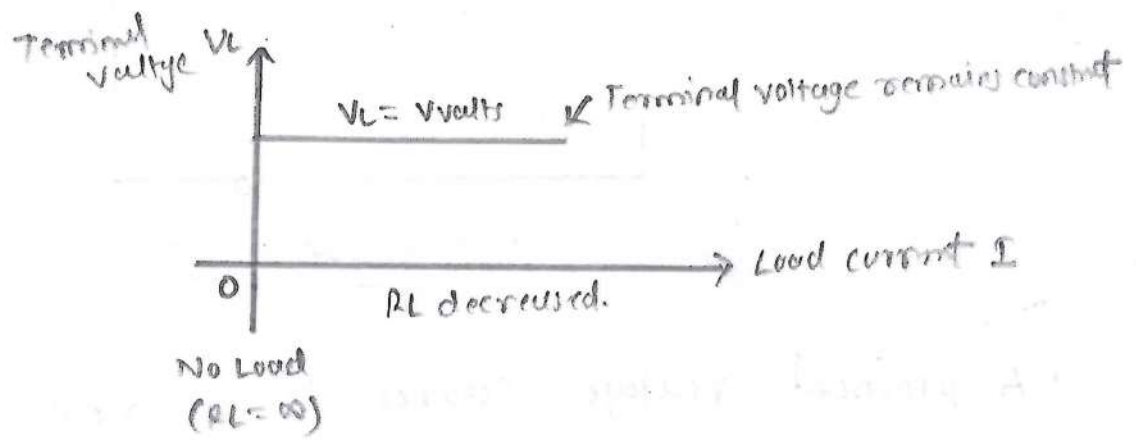 Terminal VL
voltage
VL = V volts
Terminal voltage remains constnt
Load current I
O
RL decreased.
No Load
(RL = ∞)